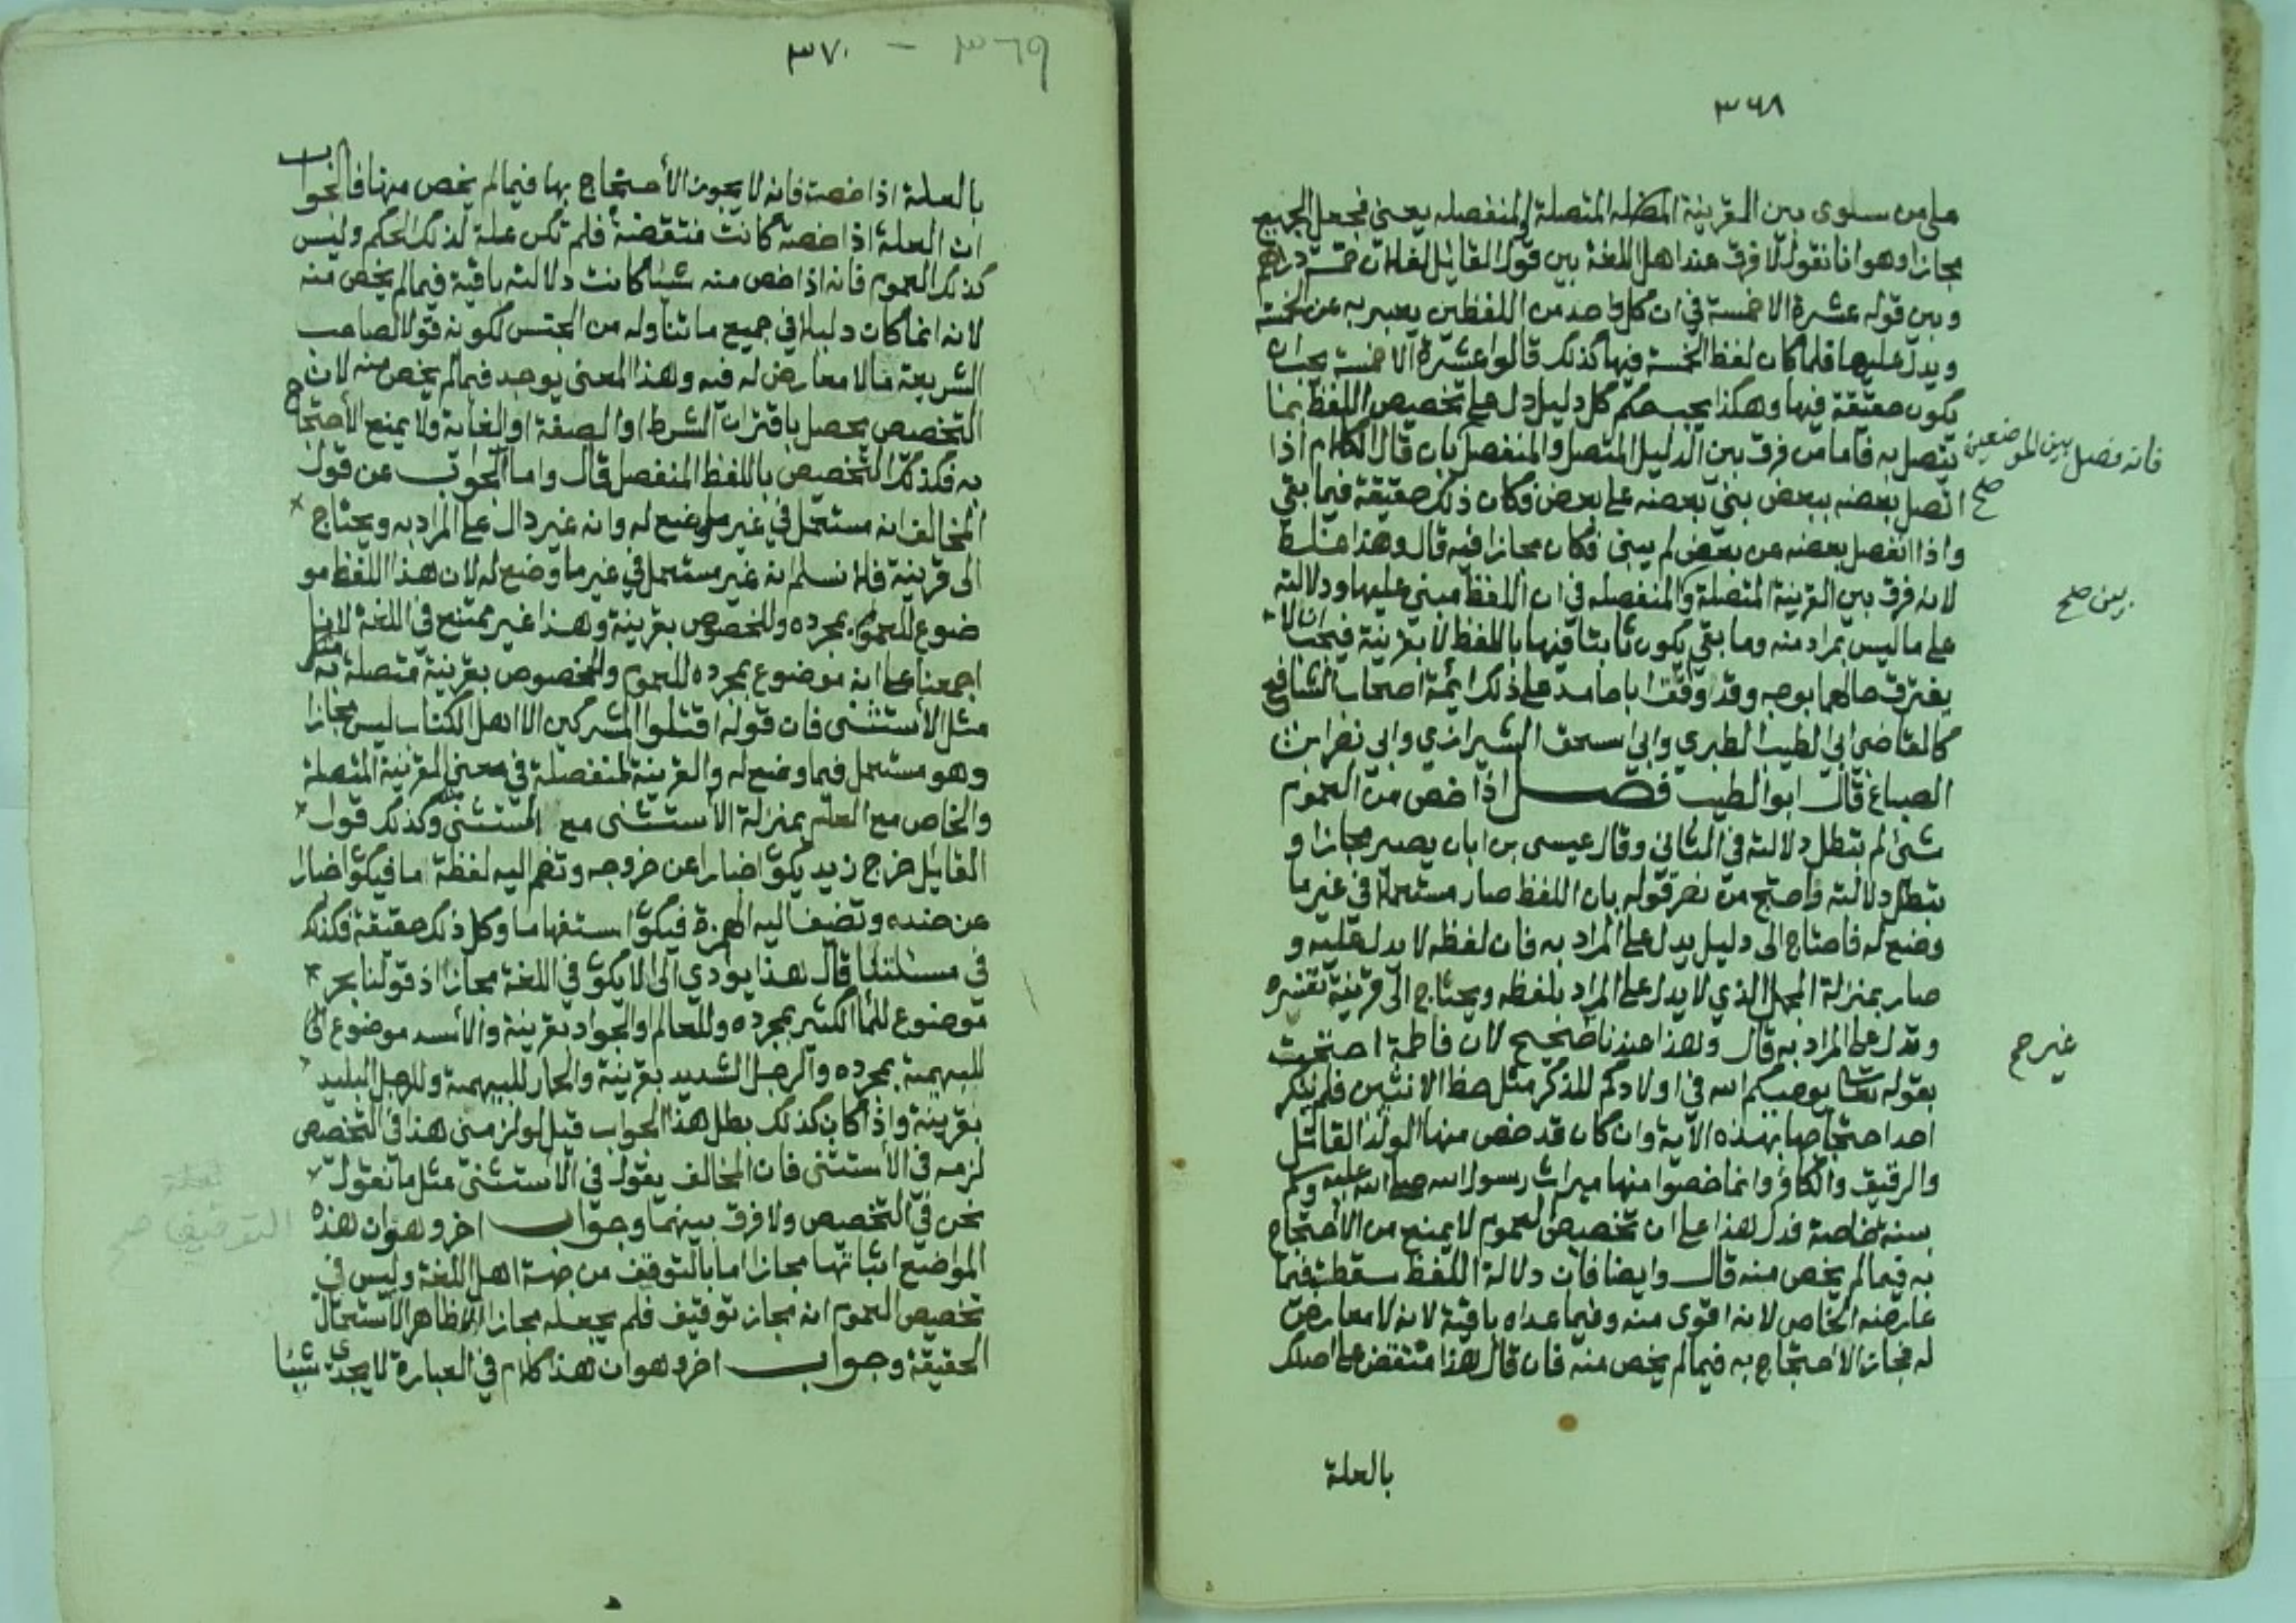 ٣٦٨
على من سلوى بين القرينة المتصلة والمنفصله يعني فجعل الجميع
مجازا وهو انا نقول لا فرق عند اهل اللغة بين قول القائل لفلان خمسة دراهم
وبين قوله عشرة الا خمسة في ان كل واحد من اللفظين يعبر به عن الخمسة
ويدل عليها فلما كان لفظ الخمسة فيها كذلك قالوا عشرة الا خمسة يجب ان
يكون حقيقة فيها وهكذا يجب حكم كل دليل دل على تخصيص اللفظ بما
يتصل به فاما من فرق بين الدليل المتصل والمنفصل بان قال الكلام اذا
فانه فصل بين الموضعين
اتصل بعضه ببعض بني بعضه على بعض فكان ذلك حقيقة فيما بقي
صح
واذا انفصل بعضه من بعض لم يبنى فكان مجازا فيه قال وهذا غلط
لانه فرق بين القرينة المتصلة والمنفصله في ان اللفظ مبني عليها ودلالته
على ما ليس بمراد منه وما بقي يكون ثابتا فيها باللفظ لا بقرينة فيجب ان لا
يفترق حالهما بوجه وقد وافق ابا حامد على ذلك ائمة اصحاب الشافعي
كالقاضي ابي الطيب الطبري وابي اسحق الشيرازي وابي نصر ابن
الصباغ قال ابو الطيب فصل اذا خص من العموم
شئ لم تبطل دلالته في الثاني وقال عيسى بن ابان يصير مجازا و
تبطل دلالته واحتج من نصر قوله بان اللفظ صار مستعملا في غير ما
وضع له فاحتاج الى دليل يدل على المراد به فان لفظه لا يدل عليه و
صار بمنزلة المجمل الذي لا يدل على المراد بلفظه ويحتاج الى قرينة تفسره
وتدل على المراد به قال وهذا عندنا صحيح لان فاطمة احتجت
غير صح
بقوله تعالى يوصيكم الله في اولادكم للذكر مثل حظ الانثيين فلم ينكر
احد احتجاجها بهذه الآية وان كان قد خص منها الولد القاتل
والرقيق والكافر وانما خصوا منها ميراث رسول الله صلى الله عليه وسلم
بسنة خاصة فدل هذا على ان تخصيص العموم لا يمنع من الاحتجاج
به فيما لم يخص منه قال وايضا فان دلالة اللفظ سقطت فيما
عارضه الخاص لانه اقوى منه وفيما عداه باقية لانه لا معارض
له فجاز الاحتجاج به فيما لم يخص منه فان قال هذا منتقض على اصلك
بالعلة
٣٦٩ – ٣٧٠
بالعلة اذا خصت فانه لا يجوز الأحتجاج بها فيما لم يخص منها فالجواب
ان العلة اذا خصت كانت منتقضة فلم تكن علة لذلك الحكم وليس
كذلك العموم فانه اذا خص منه شيئا كانت دلالته باقية فيما لم يخص منه
لانه انما كان دليلا في جميع ما تناوله من الجنس لكونه قولا لصاحب
الشريعة مما لا معارض له فيه وهذا المعنى يوجد فيما لم يخص منه لان
التخصيص يحصل باقتران الشرط او الصفة او الغاية ولا يمنع الأحتجاج
به فكذلك التخصيص باللفظ المنفصل قال واما الجواب عن قول
المخالف انه مستعمل في غير ما وضع له وانه غير دال على المراد به ويحتاج
الى قرينة فلا نسلم انه غير مستعمل في غير ما وضع له لان هذا اللفظ مو
ضوع للعموم بمجرده وللخصوص بقرينة وهذا غير ممتنع في اللغة لاننا
اجمعنا على انه موضوع بمجرده للعموم والخصوص بقرينة متصلة به مثل
مثل الأستثنى فان قوله اقتلوا المشركين الا اهل الكتاب ليس مجازا
وهو مستعمل فيما وضع له والقرينة المنفصلة في معنى القرينة المتصلة
والخاص مع العام بمنزلة الأستثنى مع المستثنى منه وكذلك قول
القائل خرج زيد يكون اخبارا عن خروجه وتضم اليه لفظة ما فيكون اخبارا
عن ضده وتضيف اليه الهمزة فيكون استفهاما وكل ذلك حقيقة فكذلك
في مسئلتنا قال هذا يؤدي الى الا يكون في اللغة مجازا اذ قولنا بحر
موضوع للماء الكثير بمجرده وللعالم او الجواد بقرينة والأسد موضوع
للبهيمة بمجرده والرجل الشديد بقرينة والحمار للبهيمة وللرجل البليد
بقرينة واذا كان كذلك بطل هذا الجواب قيل لو لزمني هذا في التخصيص
لزمه في الأستثنى فان المخالف يقول في الأستثنى مثل ما نقول
نحن في التخصيص ولا فرق بينهما وجواب اخر وهو ان هذه
المواضع اثباتها مجازا اما بالتوقف من جهة اهل اللغة وليس في
التوقيف صح
تخصيص العموم انه مجاز توقيف فلم يجعله مجازا الا لظاهر الأستعمال
الحقيقة وجواب اخر وهو ان هذا كلام في العبارة لا يجدي شيئا